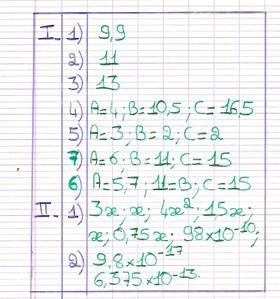 I- 1) 9,9
2) 11
3) 13
4) A=4; B=10,5; C=16,5
5) A=3; B=2; C=2
7) A=6; B=11; C=15
6) A=5,7; 11=B; C=15
II- 1) 3x; x; 4x²; 15x;
x; 0,75x; 98×10⁻¹⁰;
2) 9,8×10⁻¹⁷
6,375×10⁻¹³.